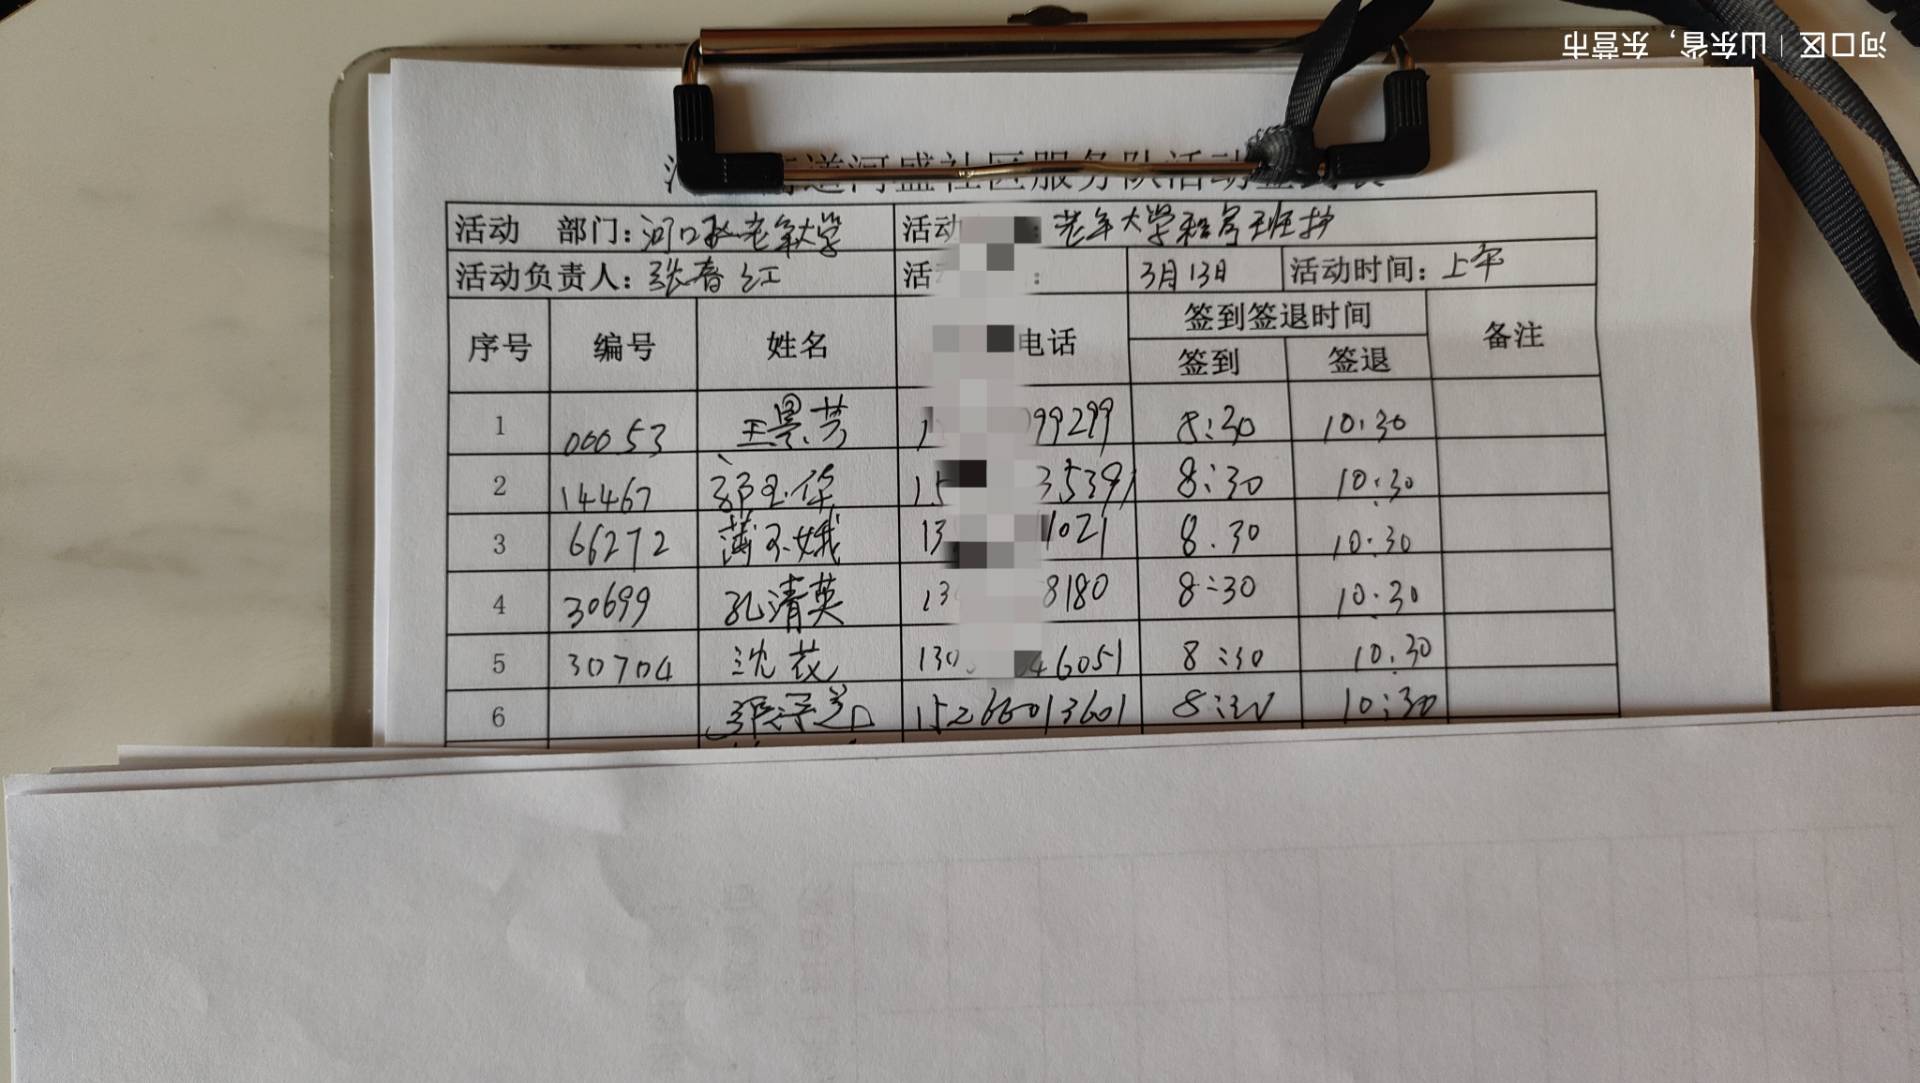 河口区 | 山东省，东营市
道河盛社区服务队活动签到表
活动 部门：河口区老年大学 活动 ：老年大学 班
活动负责人：张春红 活 ： 3月13日 活动时间：上午
序号 编号 姓名 电话 签到签退时间 备注
签到 签退
1 00053 王景芳 1 99299 8:30 10:30
2 14467 郭玉华 15 35391 8:30 10:30
3 66272 薄 娥 13 1021 8.30 10:30
4 30699 孔清英 13 8180 8:30 10:30
5 30704 沈花 130 46051 8:30 10:30
6 15266013601 8:30 10:30